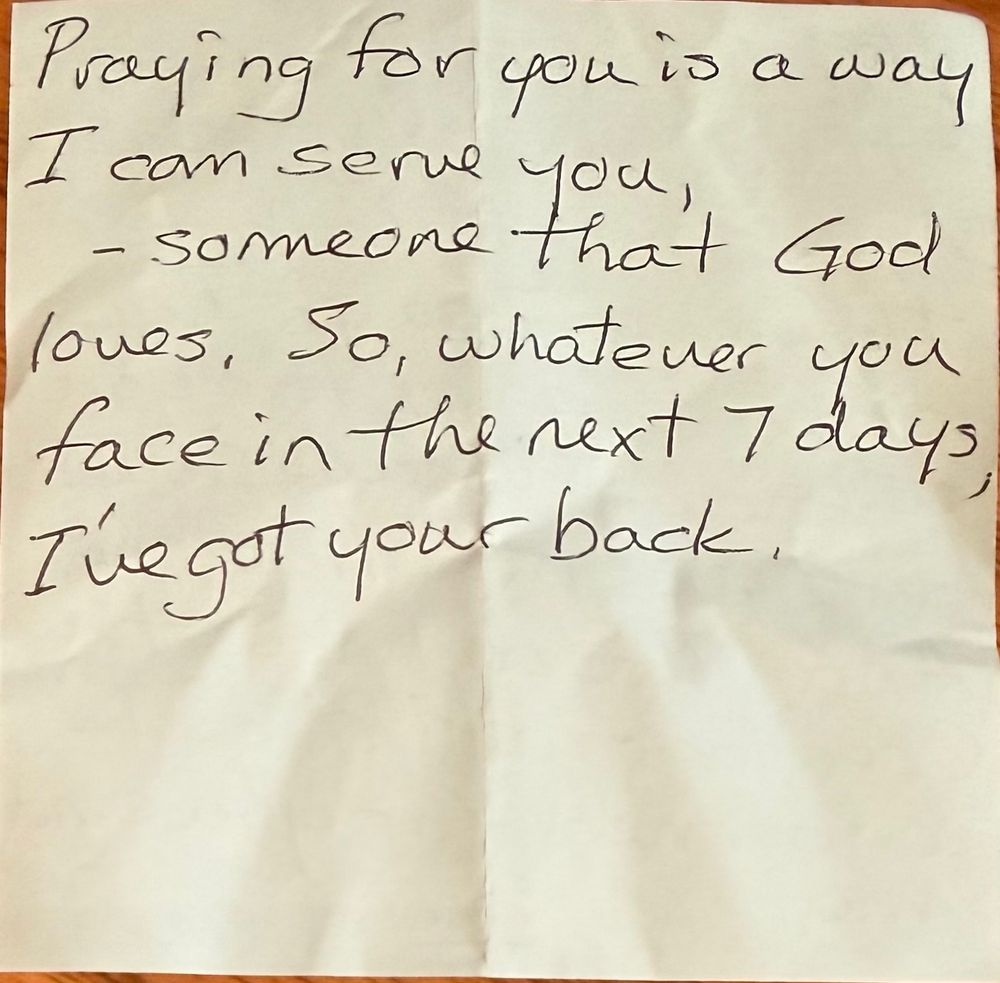 Praying for you is a way
I can serve you,
- someone that God
loves. So, whatever you
face in the next 7 days,
I've got your back.